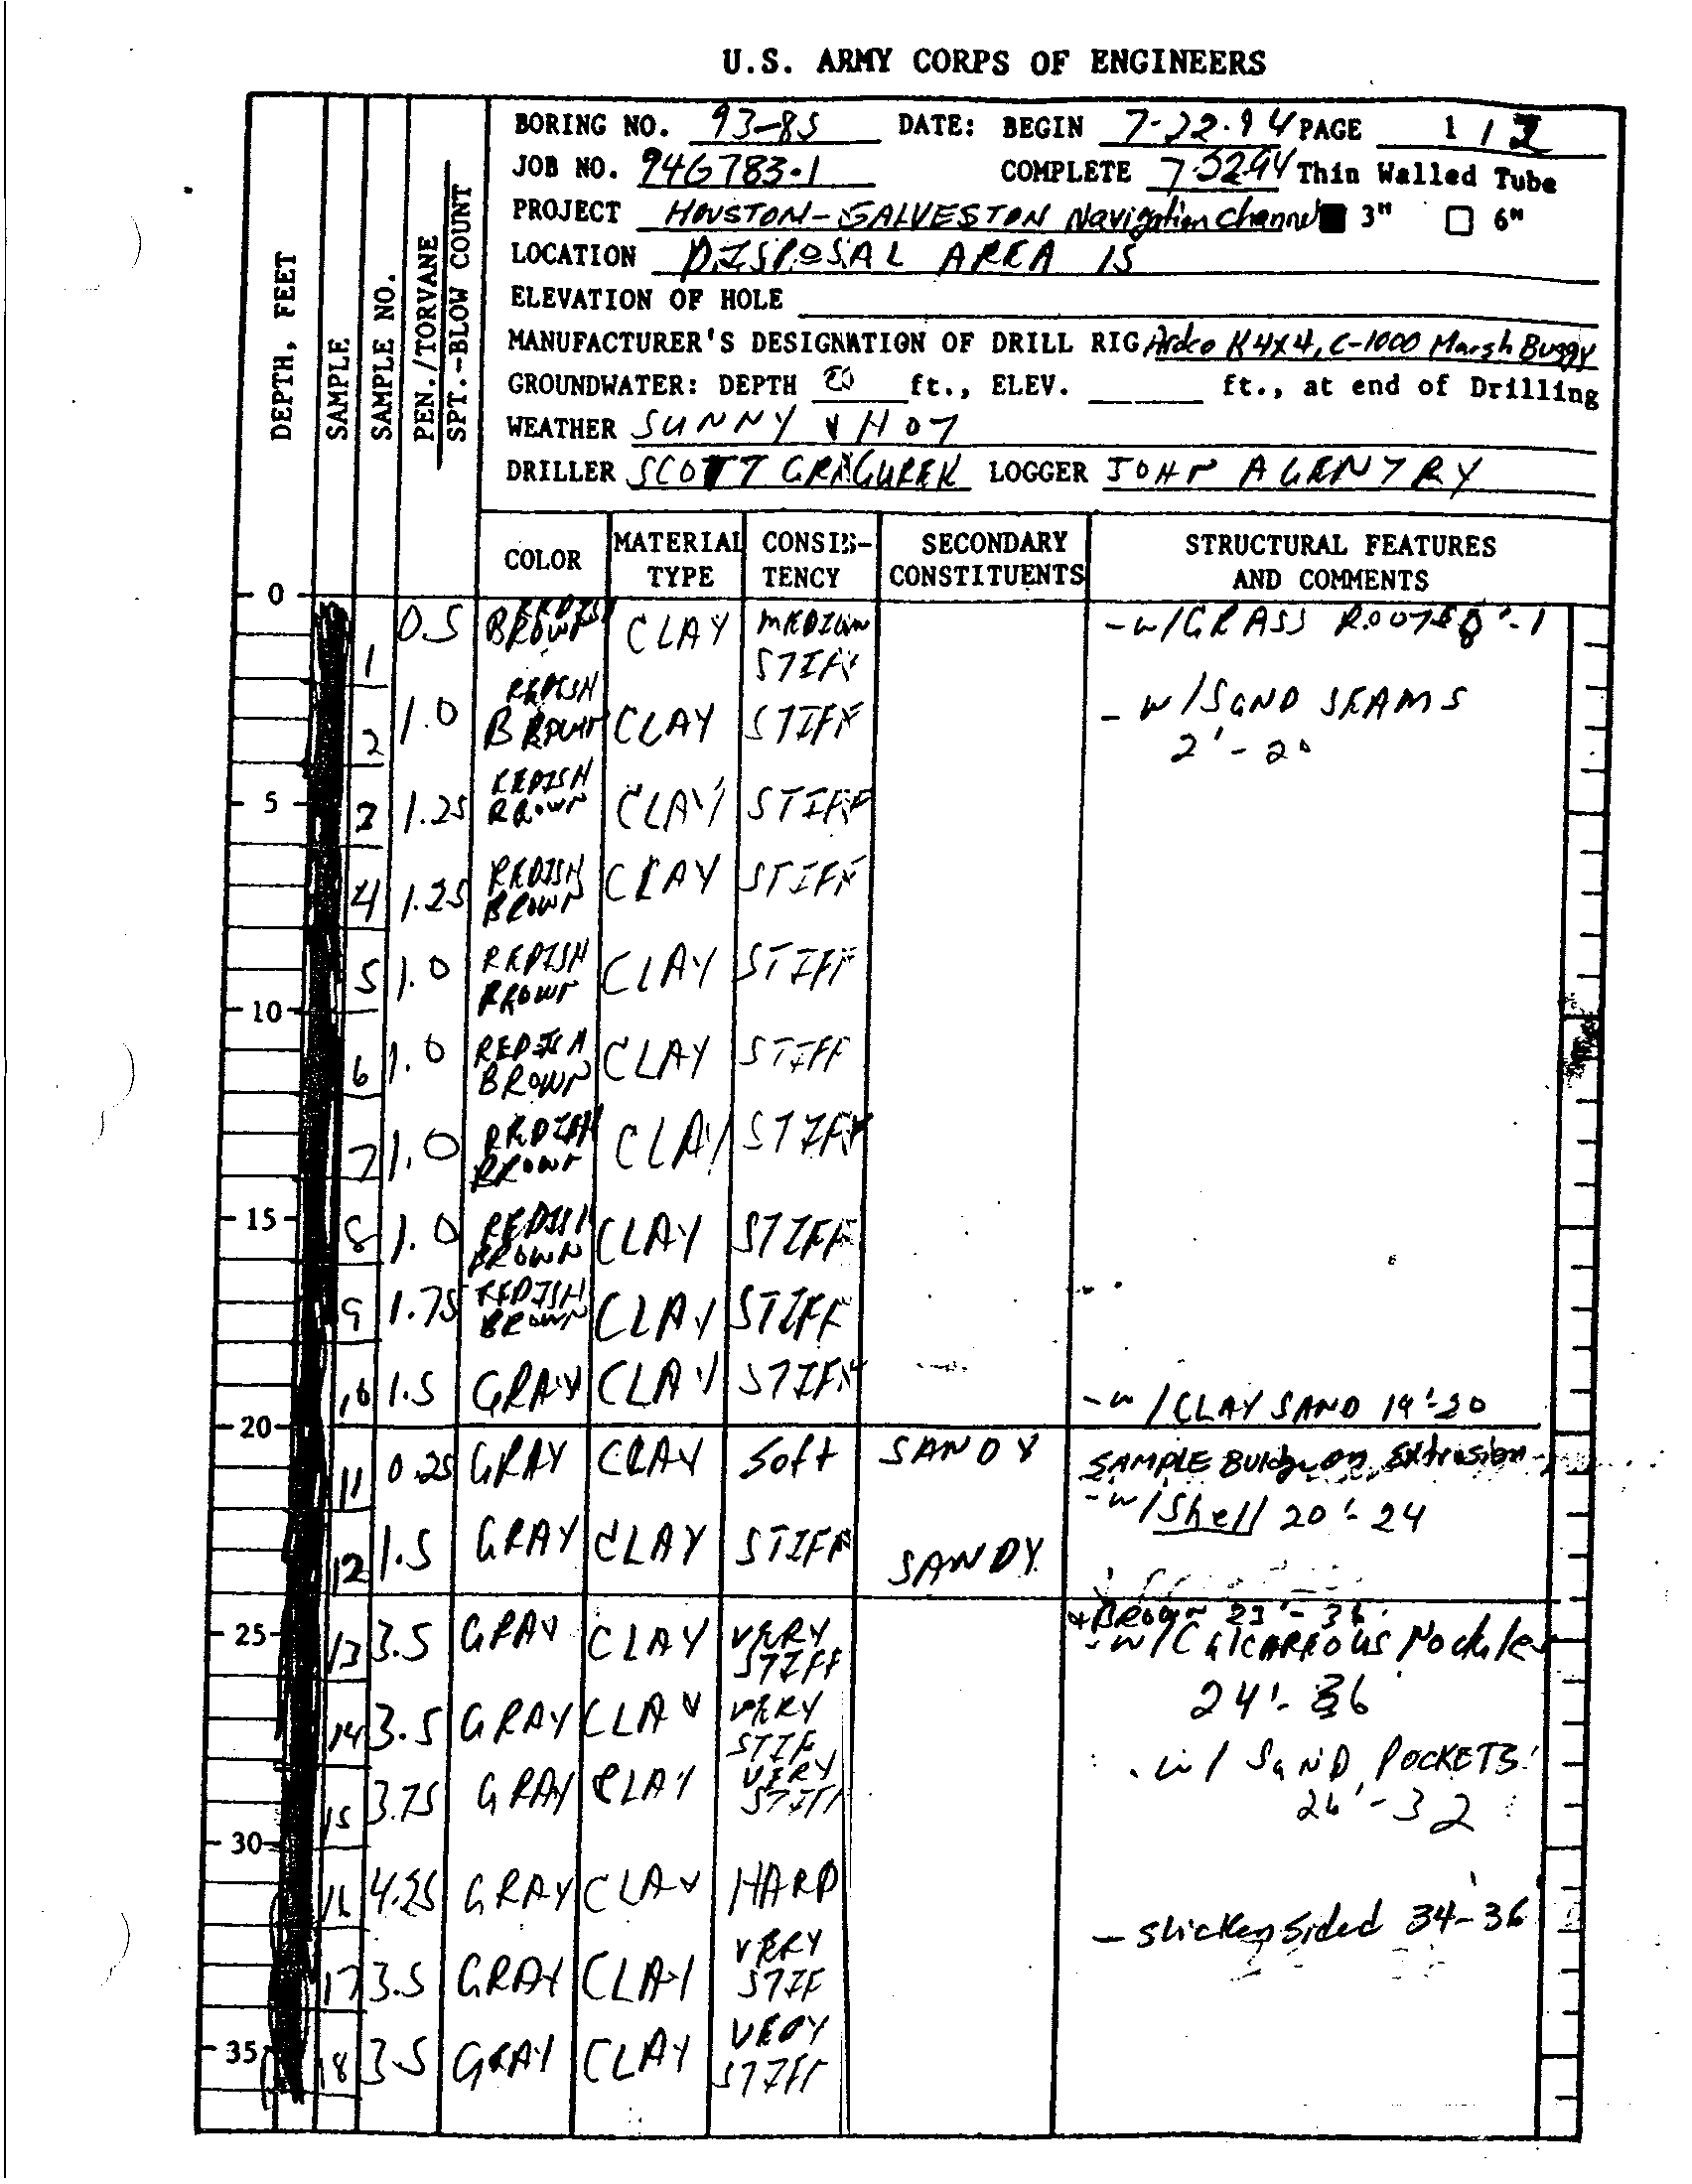 U.S. ARMY CORPS OF ENGINEERS
BORING NO. 93-85 DATE: BEGIN 7-22-94 PAGE 1 / 2
JOB NO. 94G783-1 COMPLETE 7-22-94 Thin Walled Tube
PROJECT HOUSTON-GALVESTON Navigation Channel 3" 6"
LOCATION DISPOSAL AREA 15
ELEVATION OF HOLE
MANUFACTURER'S DESIGNATION OF DRILL RIG Ardco K 4X4, C-1000 Marsh Buggy
GROUNDWATER: DEPTH 20 ft., ELEV. ft., at end of Drilling
WEATHER SUNNY & HOT
DRILLER SCOTT GRAGUREK LOGGER JOHN A GENTRY
DEPTH, FEET
SAMPLE
SAMPLE NO.
PEN./TORVANE
SPT.-BLOW COUNT
COLOR MATERIAL TYPE CONSIS-TENCY SECONDARY CONSTITUENTS STRUCTURAL FEATURES AND COMMENTS
0
1 0.5 REDISH BROWN CLAY MEDIUM STIFF -W/GRASS ROOTS 0'-1
2 1.0 REDISH BROWN CLAY STIFF - W/SAND SEAMS
2'-20
5 3 1.25 REDISH BROWN CLAY STIFF
4 1.25 REDISH BROWN CLAY STIFF
5 1.0 REDISH BROWN CLAY STIFF
10
6 1.0 REDISH BROWN CLAY STIFF
7 1.0 REDISH BROWN CLAY STIFF
15 8 1.0 REDISH BROWN CLAY STIFF
9 1.75 REDISH BROWN CLAY STIFF
10 1.5 GRAY CLAY STIFF -W/CLAY SAND 19'-20
20
11 0.25 GRAY CLAY Soft SANDY SAMPLE Buldge on Extrusion
-W/Shell 20'-24
12 1.5 GRAY CLAY STIFF SANDY
+BROWN 23'-36'
25 13 3.5 GRAY CLAY VERY STIFF -W/CalCARROUS Nodules
24'-36
14 3.5 GRAY CLAY VERY STIF
15 3.75 GRAY CLAY VERY STIFF - W/ SAND POCKETS
26'-32
30
16 4.25 GRAY CLAY HARD
- slickensided 34-36
17 3.5 GRAY CLAY VERY STIF
35 18 3.5 GRAY CLAY VERY STIFF